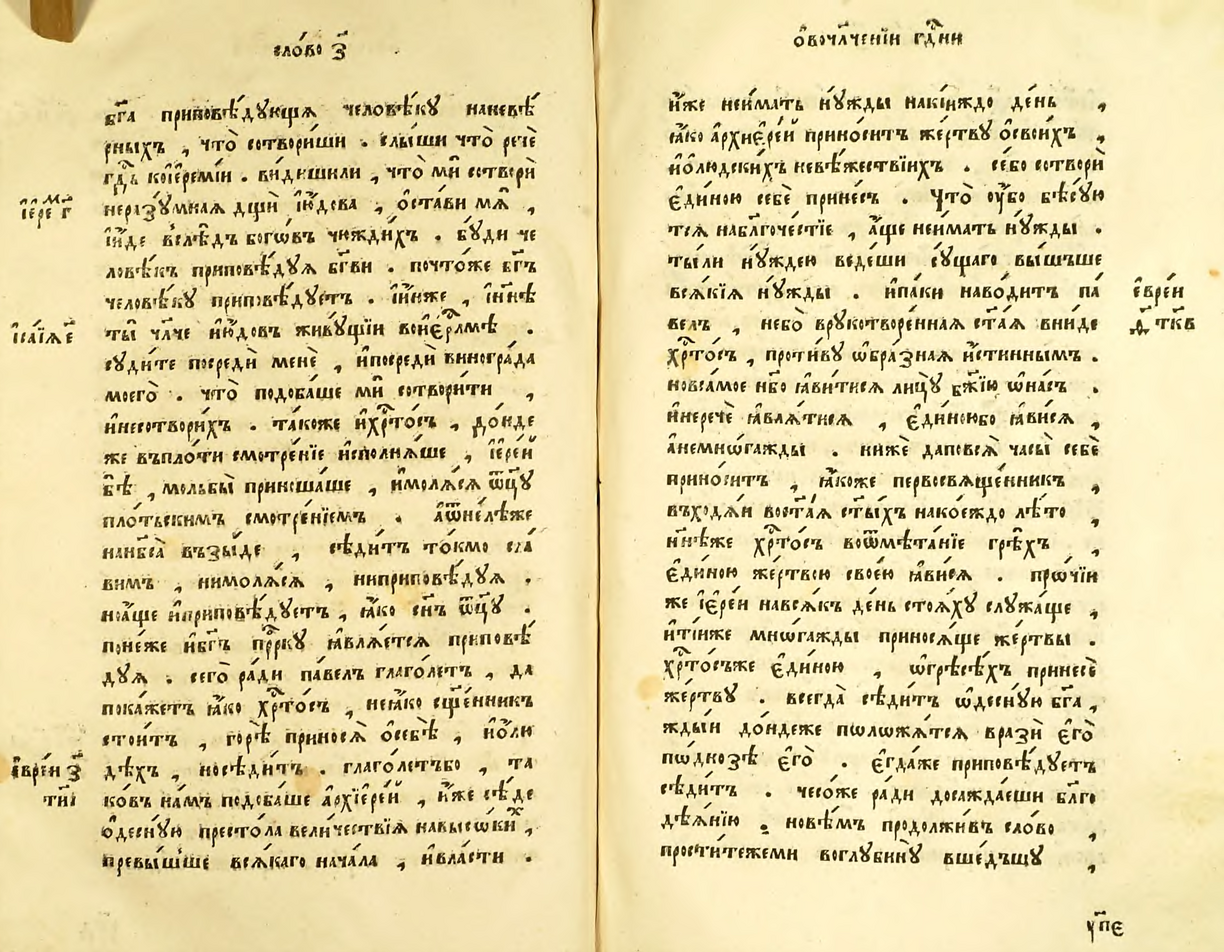 сло́во з҃
бг҃а приповѣ́дꙋюща человѣ́кꙋ наневѣ́
рныхъ , что̀ сотвори́ши . слы́ши что̀ речѐ
гд҃ь коїеремі́и . ви́дишили , что̀ мѝ сотворѝ
неразꙋ́мнаѧ дщѝ і҆ю́дова , ѡ҆ста́ви мѧ̀ ,
і҆и́де вслѣ́дъ богѡ́въ чюжди́хъ . бꙋ́ди че
ловѣ́къ приповѣ́дꙋѧ бг҃ви . почто́же бг҃ъ
человѣ́кꙋ приповѣ́дꙋетъ . і҆и́нже , і҆нн҃ѣ
ты̀ чл҃че ию́довъ живꙋ́щїи воиерⷭ҇лмѣ .
сꙋди́те посредѝ менѐ , ипосредѝ виногра́да
моего̀ . что̀ подоба́ше мѝ сотвори́ти ,
инесотвори́хъ . та́коже ихрⷭ҇то́съ , до́нде
же въпло́ти смотре́нїе исполнѧ́ше , і҆ере́й
бѣ̀ , мольбы̀ приноша́ше , имолѧ́сѧ ѿц҃ꙋ
пло́тьскимъ смотре́нїемъ . аѿне́лѣже
нанб҃са̀ възы́де , сѣди́тъ то́кмо сла́
вимъ , нимолѧ́сѧ , ниприповѣ́дꙋѧ .
ноа́ще иприповѣ́дꙋетъ , ꙗ҆ко сн҃ъ ѿц҃ꙋ .
поне́же ибг҃ъ прⷪ҇ркꙋ ꙗвлѧ́етсѧ приповѣ́
дꙋѧ . сего̀ ра́ди па́велъ глаго́летъ , да
пока́жетъ ꙗ҆ко хрⷭ҇то́съ , неꙗ҆ко сщ҃е́нникъ
стои́тъ , горѣ̀ приносѧ̀ ѡ҆себѣ̀ , иѡ҆лю
дѣ́хъ , носѣди́тъ . глаго́летъбо , та
ко́въ на́мъ подоба́ше а҆рхїере́й , и҆же сѣ́де
ѡ҆деснꙋ́ю престо́ла вели́чествїѧ навысо́кихъ ,
превы́шше всѧ́каго нача́ла , ивла́сти .
і҆ере́м г҃
і҆са́їѧ е҃
е҆вре́и з҃
тн҃і
ѡ҆вочл҃ченїи гдⷭ҇ни
и҆́же неи́мать нꙋ́жды накі́иждо де́нь ,
ꙗ҆ко а҆рхиере́й прино́ситъ же́ртвꙋ ѡ҆свои́хъ ,
иѡ҆людски́хъ невѣ́жествїихъ . се́бо сотворѝ
е҆ди́ною себѐ прине́съ . Что̀ оу҆́бо бѣсꙋ́ю
тсѧ набл҃гоче́стїе , а҆́ще неи́мать нꙋ́жды .
ты́ли нꙋ́ждею веде́ши сꙋ́щаго вы́шъше
всѧ́кїѧ нꙋ́жды . ипа́ки наво́дитъ па́
велъ , небо̀ врꙋкотворе́ннаѧ ст҃а́ѧ вни́де
хрⷭ҇то́съ , проти́вꙋ ѡ҆бра́знаѧ и҆́стиннымъ .
новса́мое нб҃о ꙗви́тисѧ лицꙋ̀ бж҃їю ѡ҆на́съ .
инеречѐ ꙗвлѧ́тисѧ , е҆ди́ноюбо ꙗви́сѧ ,
а҆немно́гажды . нижѐ даповсѧ̀ часы̀ себѐ
прино́ситъ , ꙗ҆́коже первосвѧще́нникъ ,
въходѧ́й вост҃а́ѧ ст҃ы́хъ нако́еждо лѣ́то ,
нн҃ѣже хрⷭ҇то́съ воѿмѣта́нїе грѣ́хъ ,
е҆ди́ною же́ртвою свое́ю ꙗви́сѧ . про́чїи
же і҆ере́и навсѧ́къ де́нь стоѧ́хꙋ слꙋжа́ще ,
итї́иже мно́гажды приносѧ́ще же́ртвы .
хрⷭ҇то́съже е҆ди́ною , ѡ҆грѣсѣ́хъ принесѐ
же́ртвꙋ . всегда̀ сѣди́тъ ѡ҆деснꙋ́ю бг҃а ,
жды́й до́ндеже положа́тсѧ вразѝ е҆го̀
под́нозѣ е҆го̀ . е҆гда́же приповѣ́дꙋетъ
сѣди́тъ . чесо́же ра́ди досажда́еши бл҃го
дѣѧ́нїю . новѣ́мъ продолжи́въ сло́во ,
прости́тежеми воглꙋбинꙋ̀ вше́дъщꙋ ,
е҆вре́и
д҃ тк҃в
ꙋ҃пе